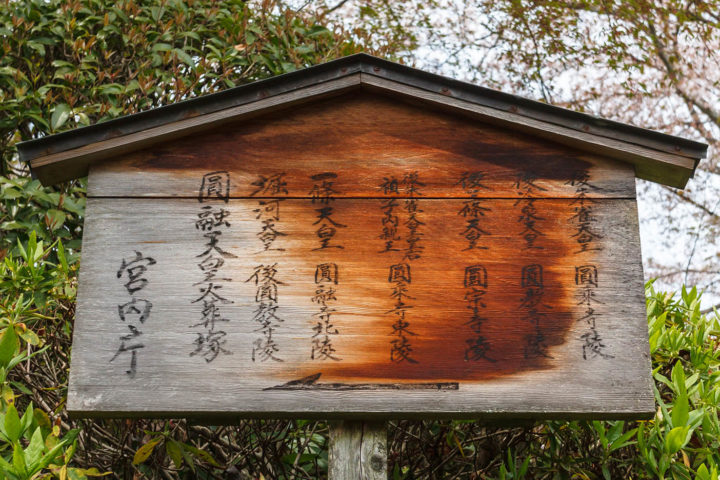 後朱雀天皇 圓乗寺陵
後冷泉天皇 圓教寺陵
後三條天皇 圓宗寺陵
後朱雀天皇皇后
禎子内親王 圓乗寺東陵
一條天皇 圓融寺北陵
堀河天皇 後圓教寺陵
圓融天皇火葬塚
宮内庁